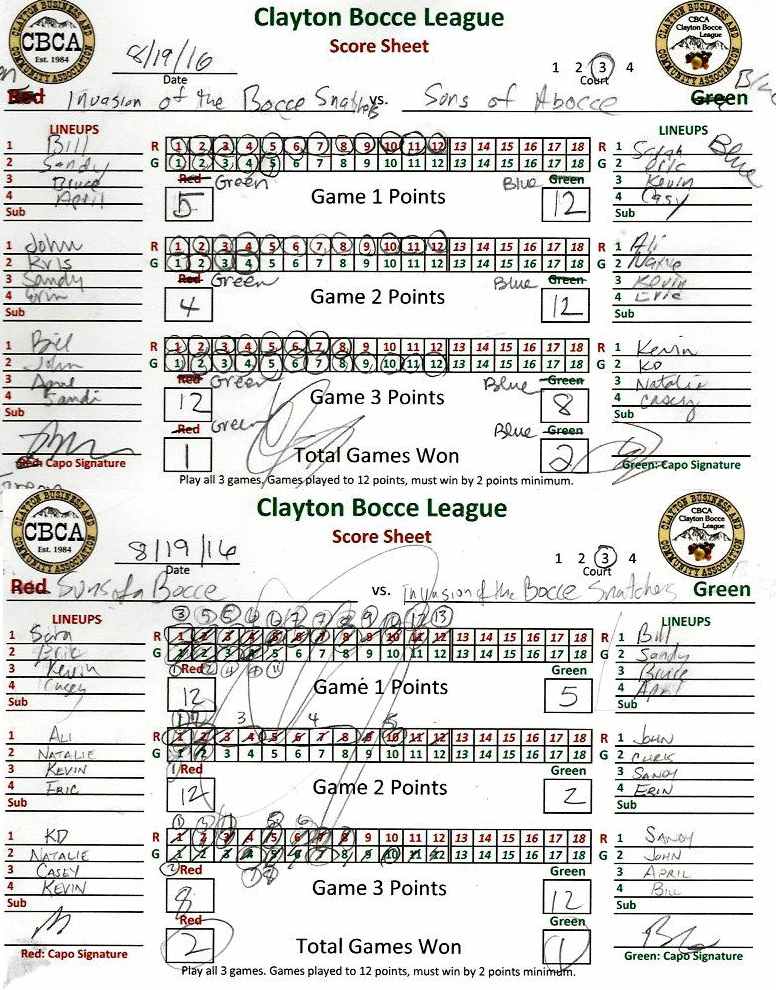 Clayton Bocce League
Score Sheet
CLAYTON BUSINESS AND COMMUNITY ASSOCIATION
CBCA
Est. 1984
CBCA
Clayton Bocce
League
8/19/16
Date
1 2 3 4
Court
Red Invasion of the Bocce Snatchers vs. Sons of Abocce Green Blue
LINEUPS LINEUPS Blue
1 Bill R 1 2 3 4 5 6 7 8 9 10 11 12 13 14 15 16 17 18 R 1 Sarah
2 Sandy G 1 2 3 4 5 6 7 8 9 10 11 12 13 14 15 16 17 18 G 2 Eric
3 Bruce Red Green Blue Green 3 Kevin
4 April 5 Game 1 Points 12 4 Casy
Sub Sub
1 John R 1 2 3 4 5 6 7 8 9 10 11 12 13 14 15 16 17 18 R 1 Ali
2 Kris G 1 2 3 4 5 6 7 8 9 10 11 12 13 14 15 16 17 18 G 2
3 Sandy Red Green Blue Green 3 Kevin
4 Erin 4 Game 2 Points 12 4 Eric
Sub Sub
1 Bill R 1 2 3 4 5 6 7 8 9 10 11 12 13 14 15 16 17 18 R 1 Kevin
2 John G 1 2 3 4 5 6 7 8 9 10 11 12 13 14 15 16 17 18 G 2 KD
3 April Red Green Blue Green 3 Natalie
4 Sandi 12 Game 3 Points 8 4 Casey
Sub Red Green Blue Green Sub
1 Total Games Won 2
Red: Capo Signature Green: Capo Signature
Green
Play all 3 games. Games played to 12 points, must win by 2 points minimum.
Clayton Bocce League
Score Sheet
CLAYTON BUSINESS AND COMMUNITY ASSOCIATION
CBCA
Est. 1984
CBCA
Clayton Bocce
League
8/19/16
Date
1 2 3 4
Court
Red Sons of a Bocce vs. Invasion of the Bocce Snatchers Green
LINEUPS LINEUPS
1 Sara R 1 2 3 4 5 6 7 8 9 10 11 12 13 14 15 16 17 18 R 1 Bill
2 Eric G 1 2 3 4 5 6 7 8 9 10 11 12 13 14 15 16 17 18 G 2 Sandy
3 Kevin Red Green 3 Bruce
4 Casey 12 Game 1 Points 5 4 April
Sub Sub
1 ALI R 1 2 3 4 5 6 7 8 9 10 11 12 13 14 15 16 17 18 R 1 JOHN
2 NATALIE G 1 2 3 4 5 6 7 8 9 10 11 12 13 14 15 16 17 18 G 2 CHRIS
3 KEVIN Red Green 3 SANDY
4 ERIC 12 Game 2 Points 2 4 ERIN
Sub Sub
1 KD R 1 2 3 4 5 6 7 8 9 10 11 12 13 14 15 16 17 18 R 1 SANDY
2 NATALIE G 1 2 3 4 5 6 7 8 9 10 11 12 13 14 15 16 17 18 G 2 JOHN
3 CASEY Red Green 3 APRIL
4 KEVIN 8 Game 3 Points 12 4 BILL
Sub Red Green Sub
2 Total Games Won 1
Red: Capo Signature Green: Capo Signature
Play all 3 games. Games played to 12 points, must win by 2 points minimum.